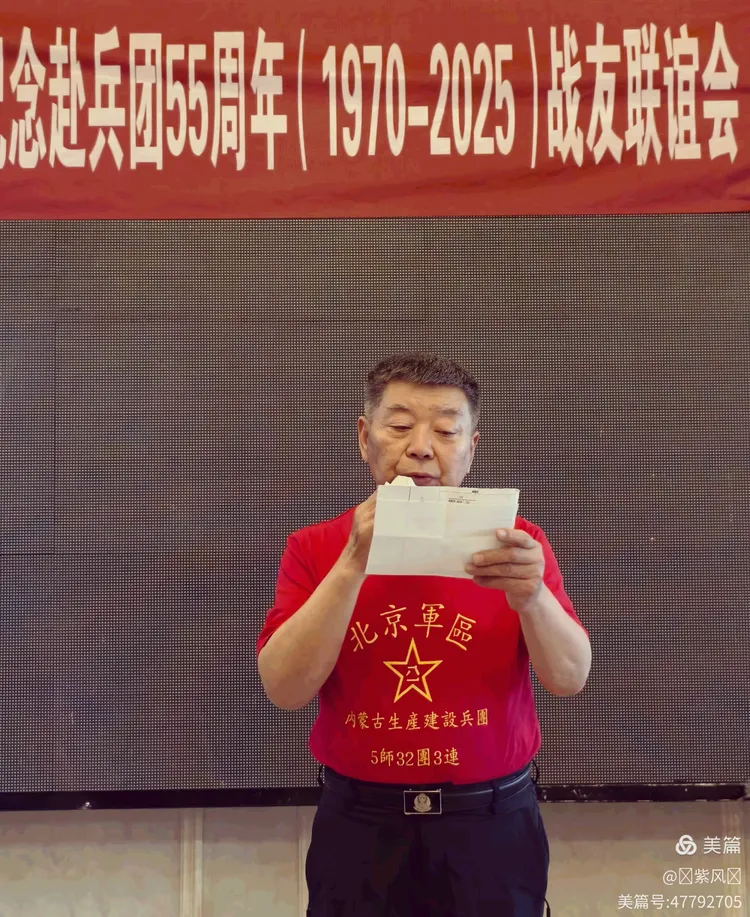 念赴兵团55周年(1970-2025)战友联谊会
北京軍區
八一
内蒙古生産建設兵團
5師32團3連
美篇
@紫风
美篇号:47792705